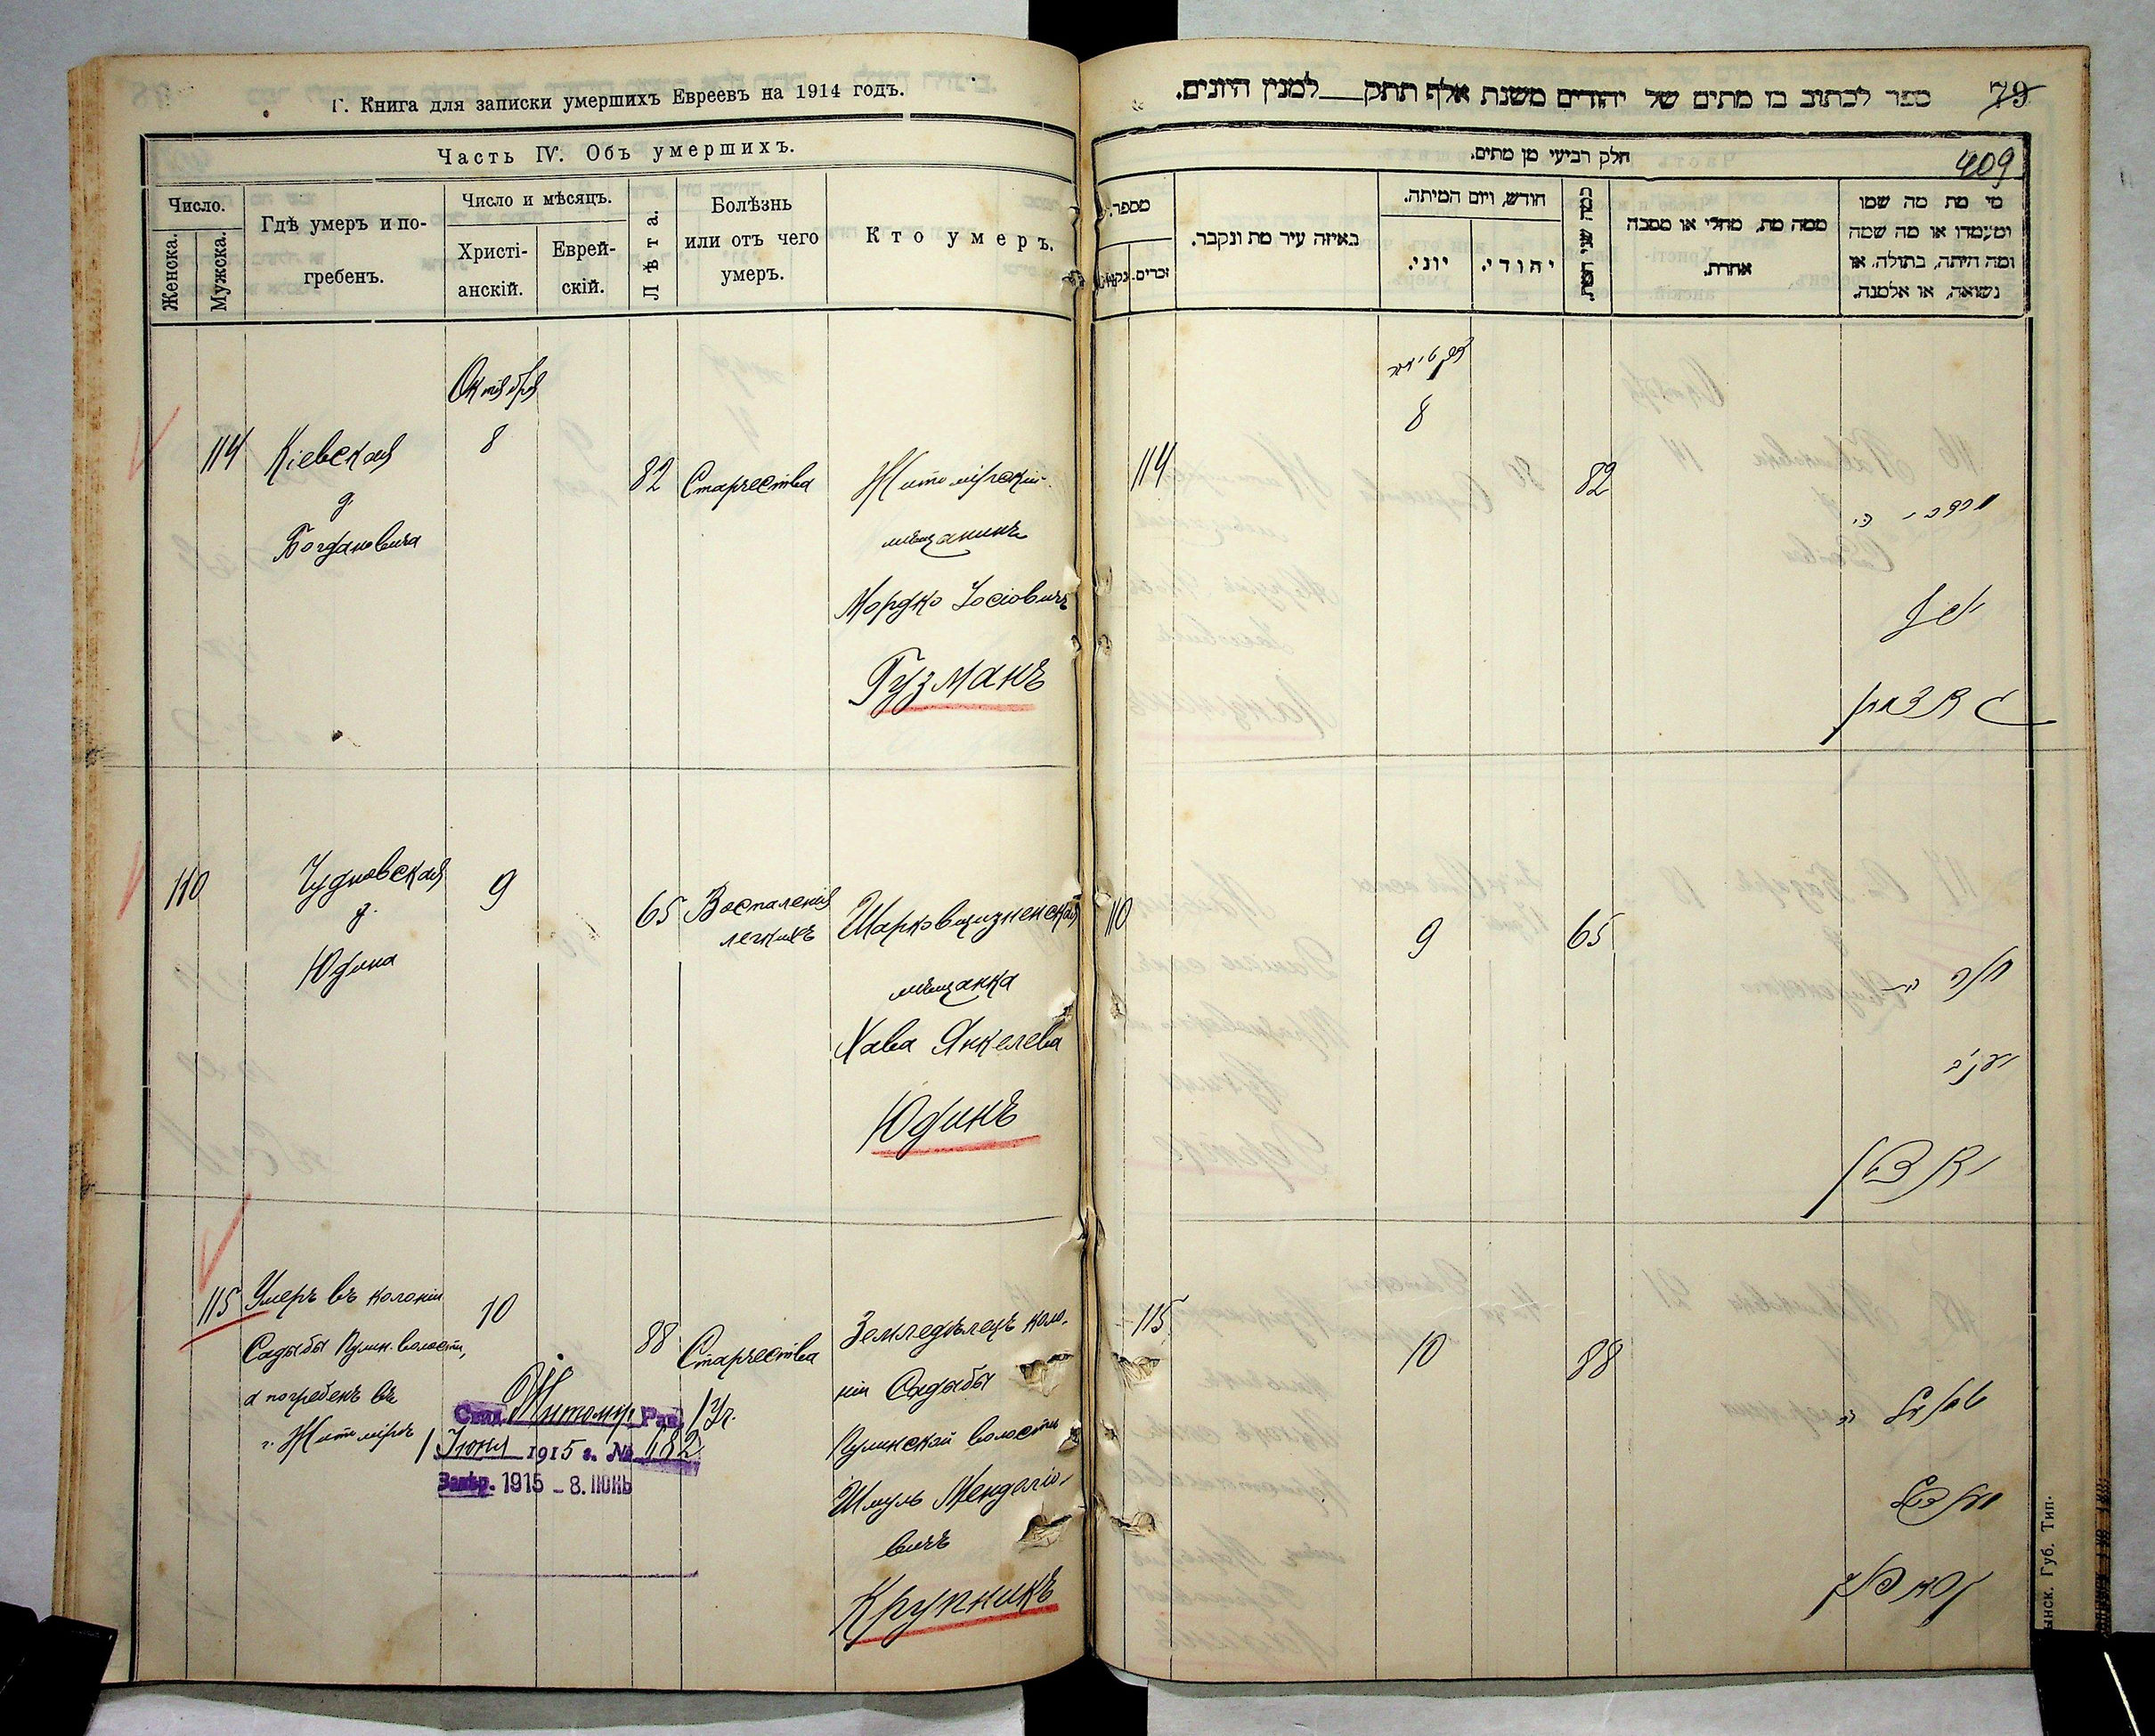 Г. Книга для записки умершихъ Евреевъ на 1914 годъ.
Часть IV. Объ умершихъ.
Число.
Женска.
Мужска.
Гдѣ умеръ и по-
гребенъ.
Число и мѣсяцъ.
Христі-
анскій.
Еврей-
скій.
Лѣта.
Болѣзнь
или отъ чего
умеръ.
Кто умеръ.
Октября
114
Кіевская
д.
Богдановича
8
82
Старчества
Житомірскій
мѣщанинъ
Мордко Іосіовичъ
Гузманъ
110
Чудновская
д.
Юдина
9
65
Воспаленія
легкихъ
Шарковщизненская
мѣщанка
Хава Янкелева
Юдинъ
115
Умеръ въ колоніи
Садыбы Пулин. волости,
а погребенъ въ
г. Житомірѣ
10
88
Старчества
Земледѣлецъ коло-
ніи Садыбы
Пулинской волости
Шмуль Менделіо-
вичъ
Крупникъ
Свид. Житомир. Рав.
1 Іюня 1915 г. № 182
Завѣр. 1915 - 8. ІЮНЬ
ספר לכתוב בו מתים של יהודים משנת אלף תתק__למנין היונים.
79
חלק רביעי מן מתים.
409
מספר.
נקבות
זכרים.
באיזה עיר מת ונקבר.
חודש, ויום המיתה.
יוני.
יהודי.
כמה שני חיות.
ממה מת, מחלי או מסבה
אחרת.
מי מת מה שמו
ומעמדו או מה שמה
ומה היתה, בתולה, או
נשואה, או אלמנה.
114
8
82
מרדכי בר
יוסף
גוזמאן
110
9
65
חוה בת
יעקב
יודין
115
10
88
שמואל בר
מענדיל
קרופניק
ынск. Губ. Тип.